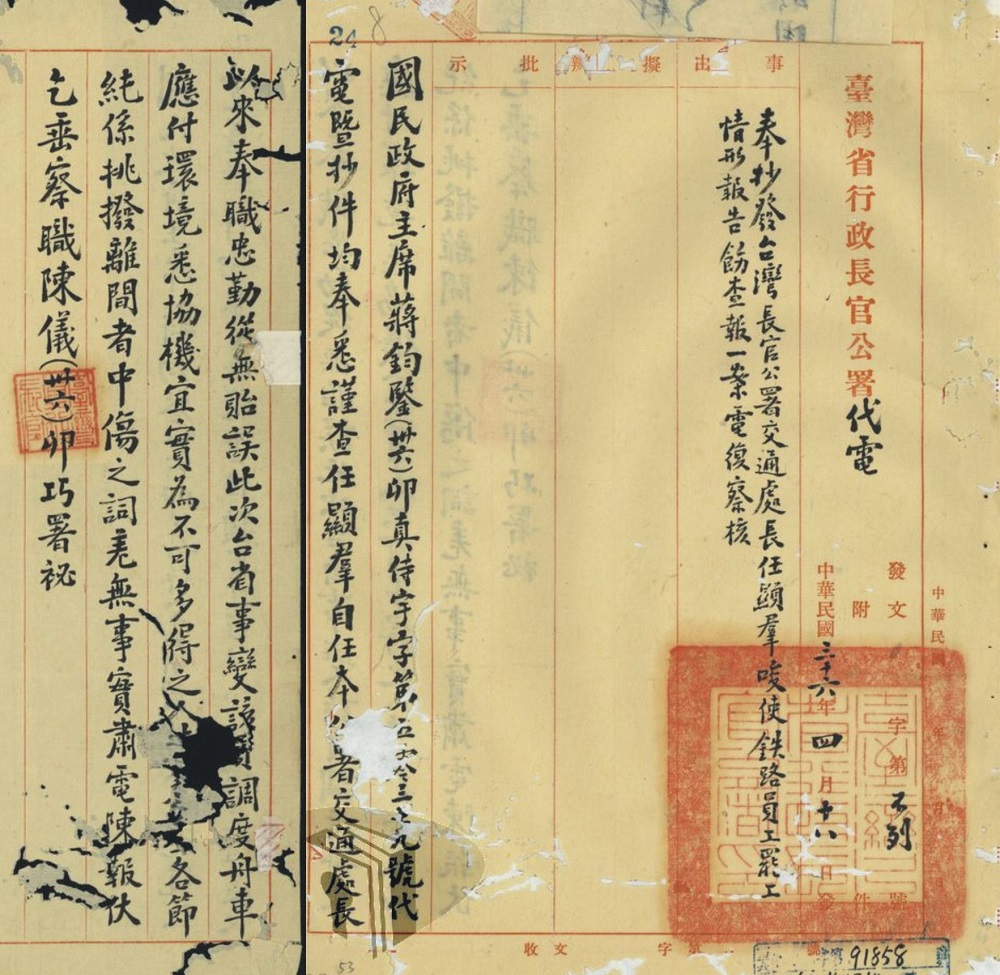 臺灣省行政長官公署代電
發文 字第不列號
附件
中華民國三十六年四月十八日發
奉抄發台灣長官公署交通處長任顯羣唆使鉄路員工罷工
情形報告飭查報一案電復察核
事由
擬辦
批示
國民政府主席蔣鈞鑒(卅六)卯真侍宇字第 號代
電暨抄件均奉悉謹查任顯羣自任本公署交通處長
以來奉職忠勤從無貽誤此次台省事變該員調度舟車
應付環境悉協機宜實為不可多得之 各節
純係挑撥離間者中傷之詞羌無事實肅電陳報伏
乞垂察職陳儀(卅六)卯巧署祕
24
8
收文 字第 號
91858
53